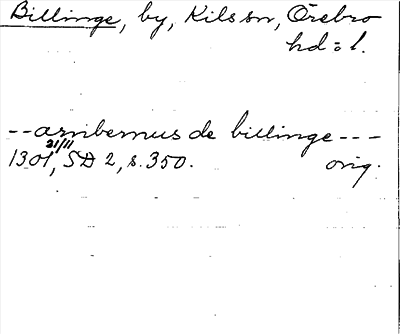 Billinge, by, Kils sn, Örebro
hd = l.
-- arnbernus de billinge ---
1301 21/11, SD 2, s. 350. orig.